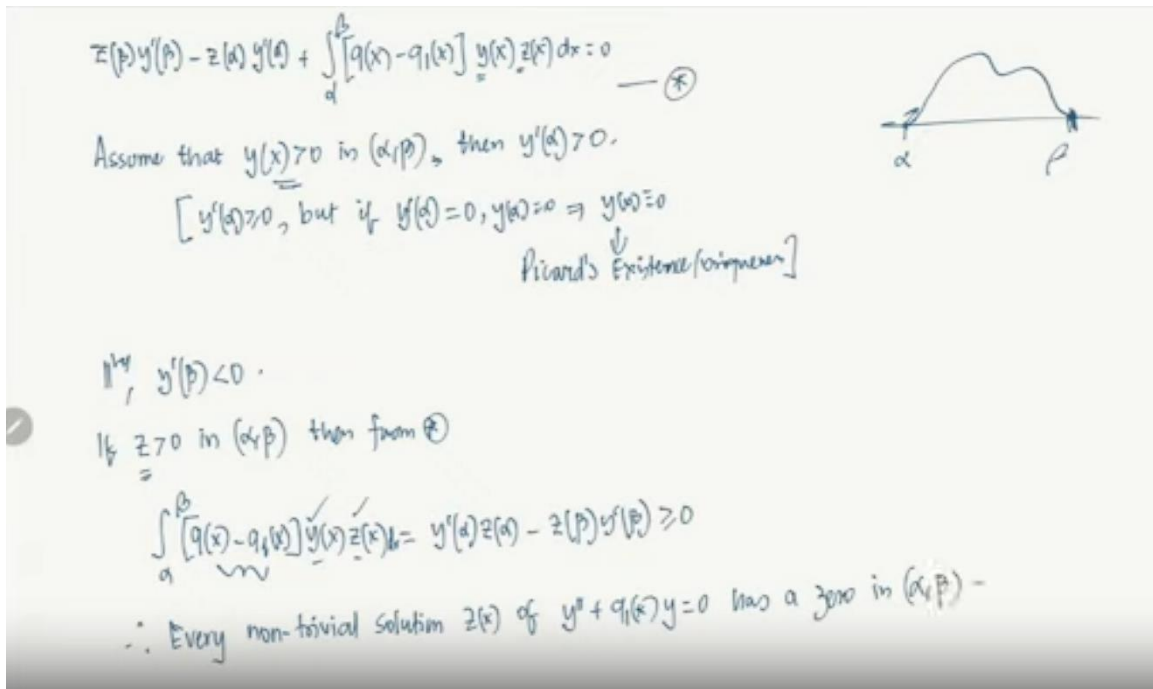 z(β)y'(β) - z(α)y'(α) + ∫_α^β [q(x) - q₁(x)] y(x) z(x) dx = 0 — ⊛
Assume that y(x) > 0 in (α, β), then y'(α) > 0.
α β
[y'(α) ≥ 0, but if y'(α) = 0, y(α) = 0 ⇒ y(x) ≡ 0
↓
Picard's Existence/Uniqueness]
|||ly, y'(β) < 0.
If z > 0 in (α, β) then from ⊛
∫_α^β [q(x) - q₁(x)] y(x) z(x) dx = y'(α)z(α) - z(β)y'(β) ≥ 0
∴ Every non-trivial solution z(x) of y'' + q₁(x)y = 0 has a zero in (α, β) -